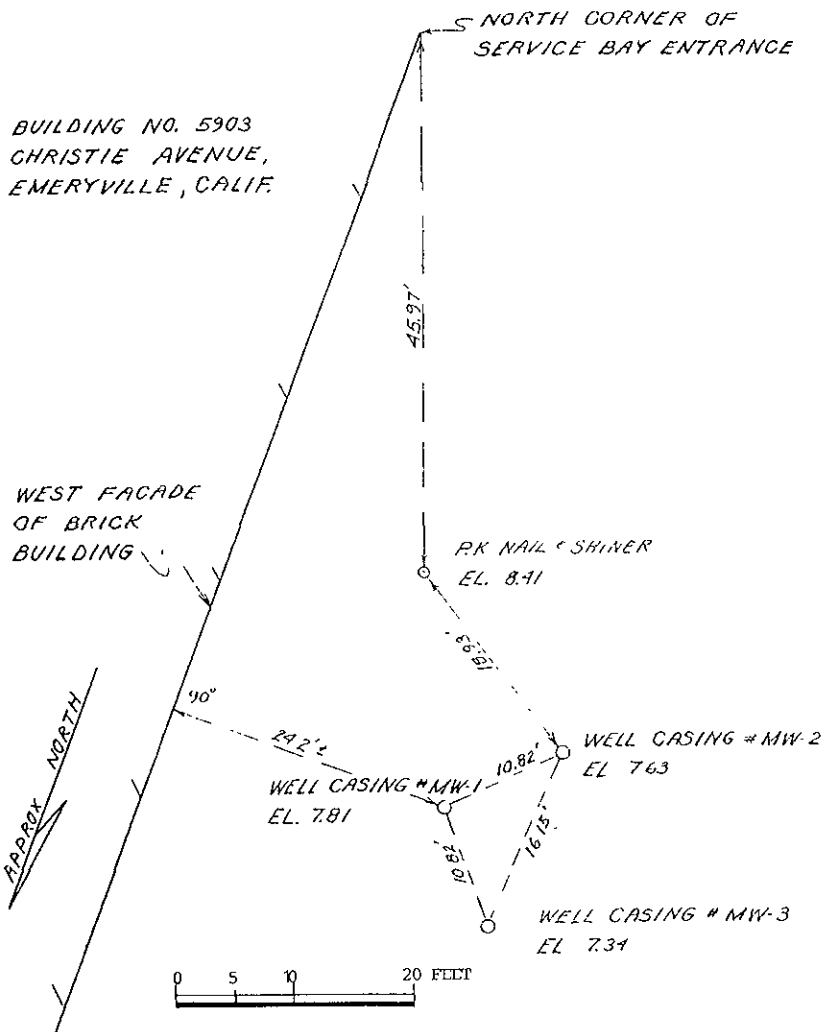 NORTH CORNER OF
SERVICE BAY ENTRANCE
BUILDING NO. 5903
CHRISTIE AVENUE,
EMERYVILLE, CALIF.
45.97'
WEST FACADE
OF BRICK
BUILDING
P.K NAIL & SHINER
EL. 8.41
18.93'
90°
24.2'±
APPROX NORTH
WELL CASING # MW-2
EL 7.63
10.82'
WELL CASING # MW-1
EL. 7.81
10.82'
16.15'
WELL CASING # MW-3
EL 7.34
0 5 10 20 FEET